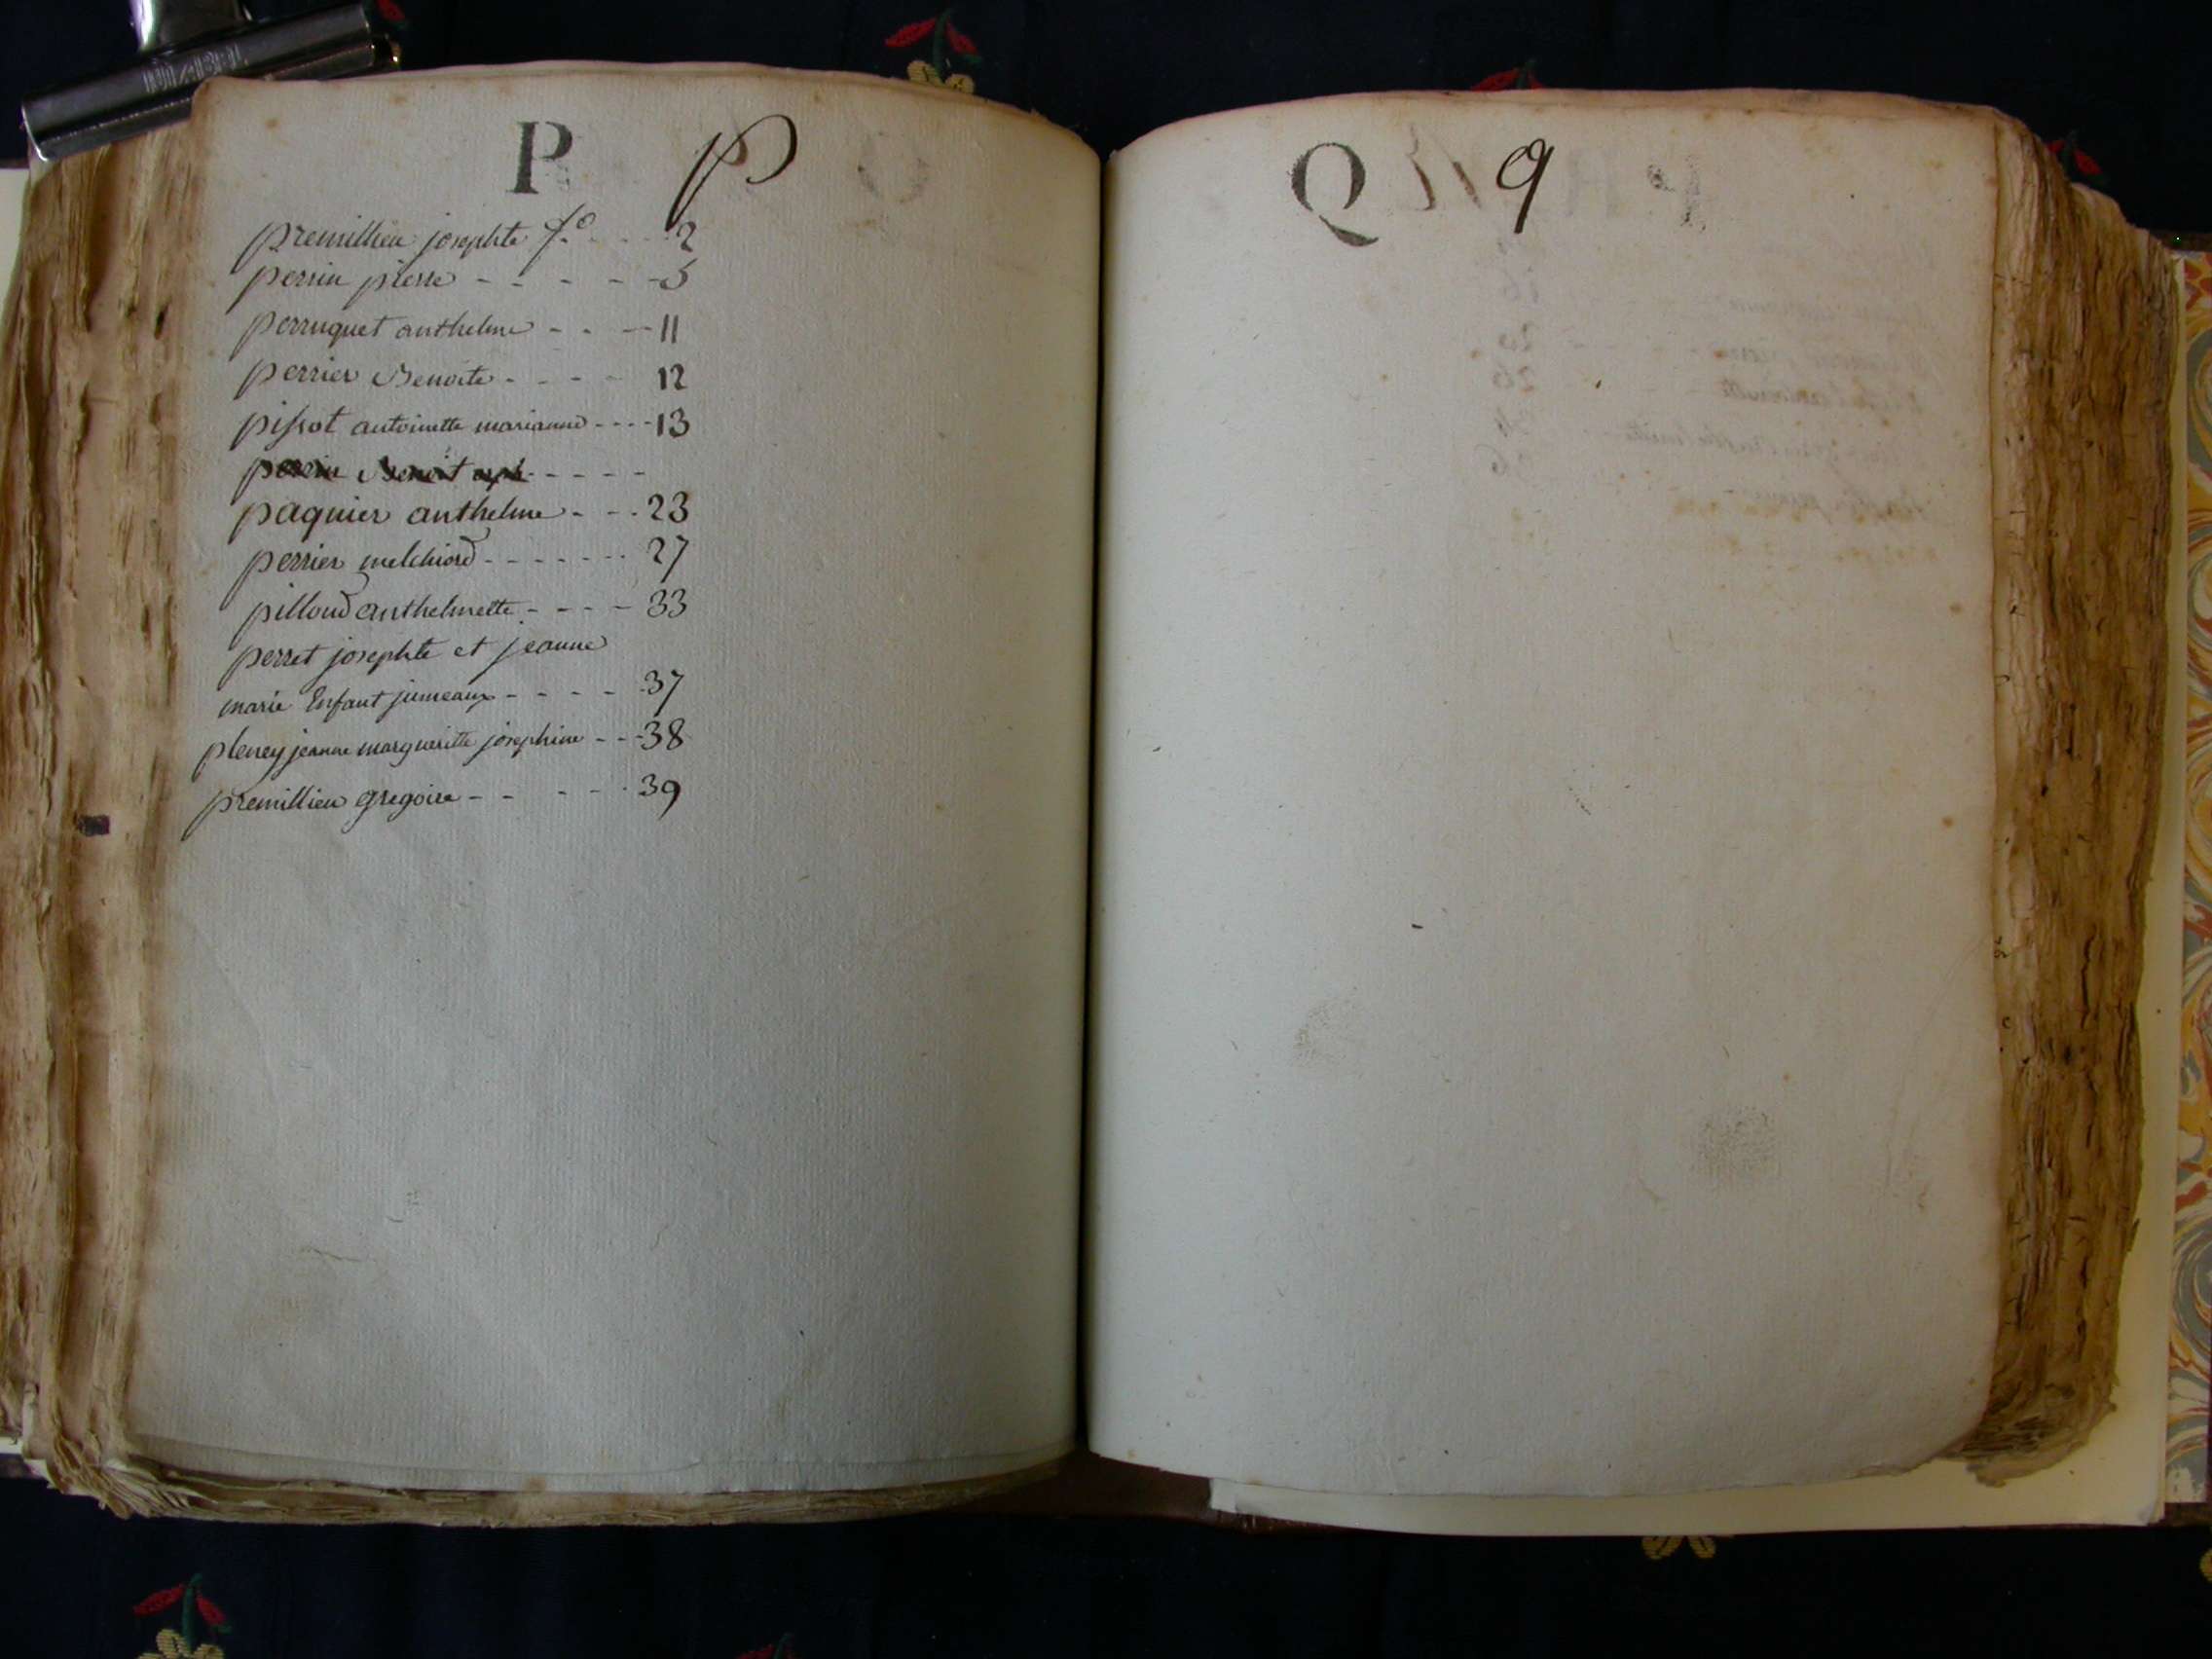 P p
premillieu josephte f.o - - - 2
perrin pierre - - - - - 5
perruquet anthelme - - - 11
perrier Benoite - - - - 12
pissot antoinette marianne - - - - 13
perrin Benoit - - - -
paquier anthelme - - - 23
perrier melchiord - - - - - - - 27
pilloud anthelmette - - - - 33
perret josephte et jeanne
marie Enfant jumeaux - - - - - 37
pleney jeanne margueritte josephine - - - 38
premillieu gregoire - - - - - 39
Q q